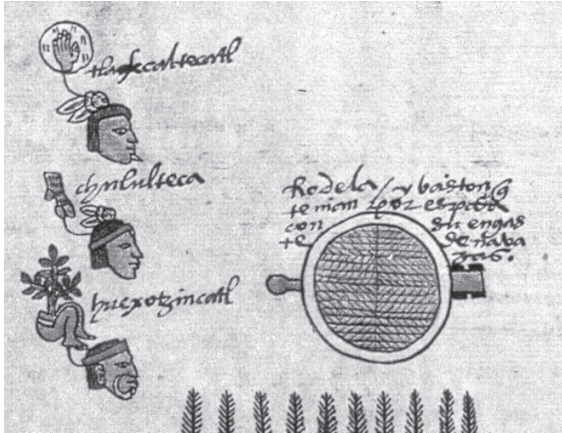 tlaxcaltecatl
chululteca
huexotzincatl
Rodela / y baston q̃
tenian por espada
con su engas
te de nava
xas.